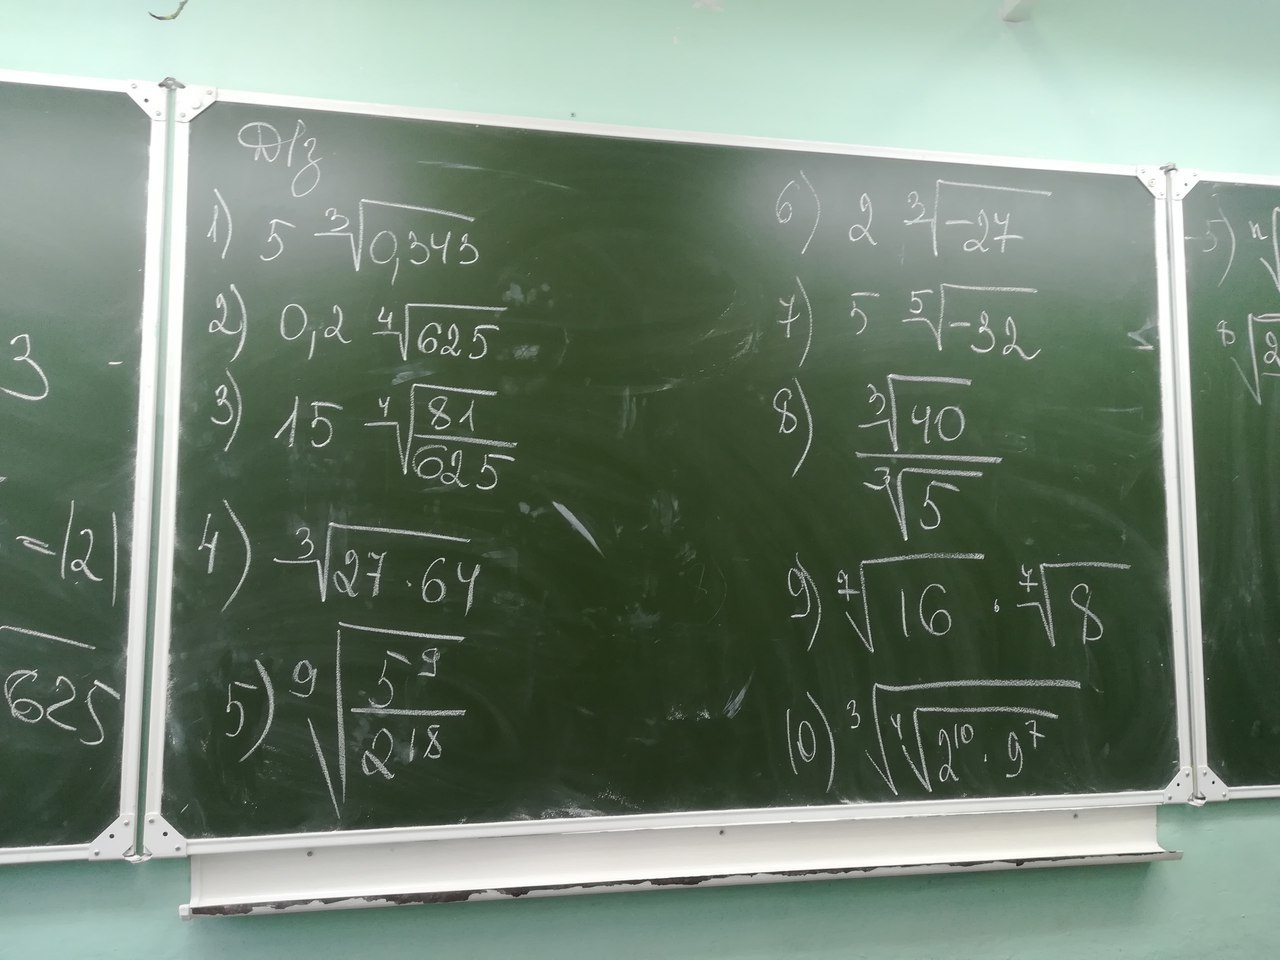 Д/з
1) 5 ∛0,343
2) 0,2 ∜625
3) 15 ∜(81/625)
4) ∛(27·64)
5) ⁹√(5⁹/2¹⁸)
6) 2 ∛-27
7) 5 ⁵√-32
8) ∛40/∛5
9) ⁷√16 · ⁷√8
10) ∛(∜(2¹⁰·9⁷))
3 -
=|2|
625
5) ⁿ√
⁸√2